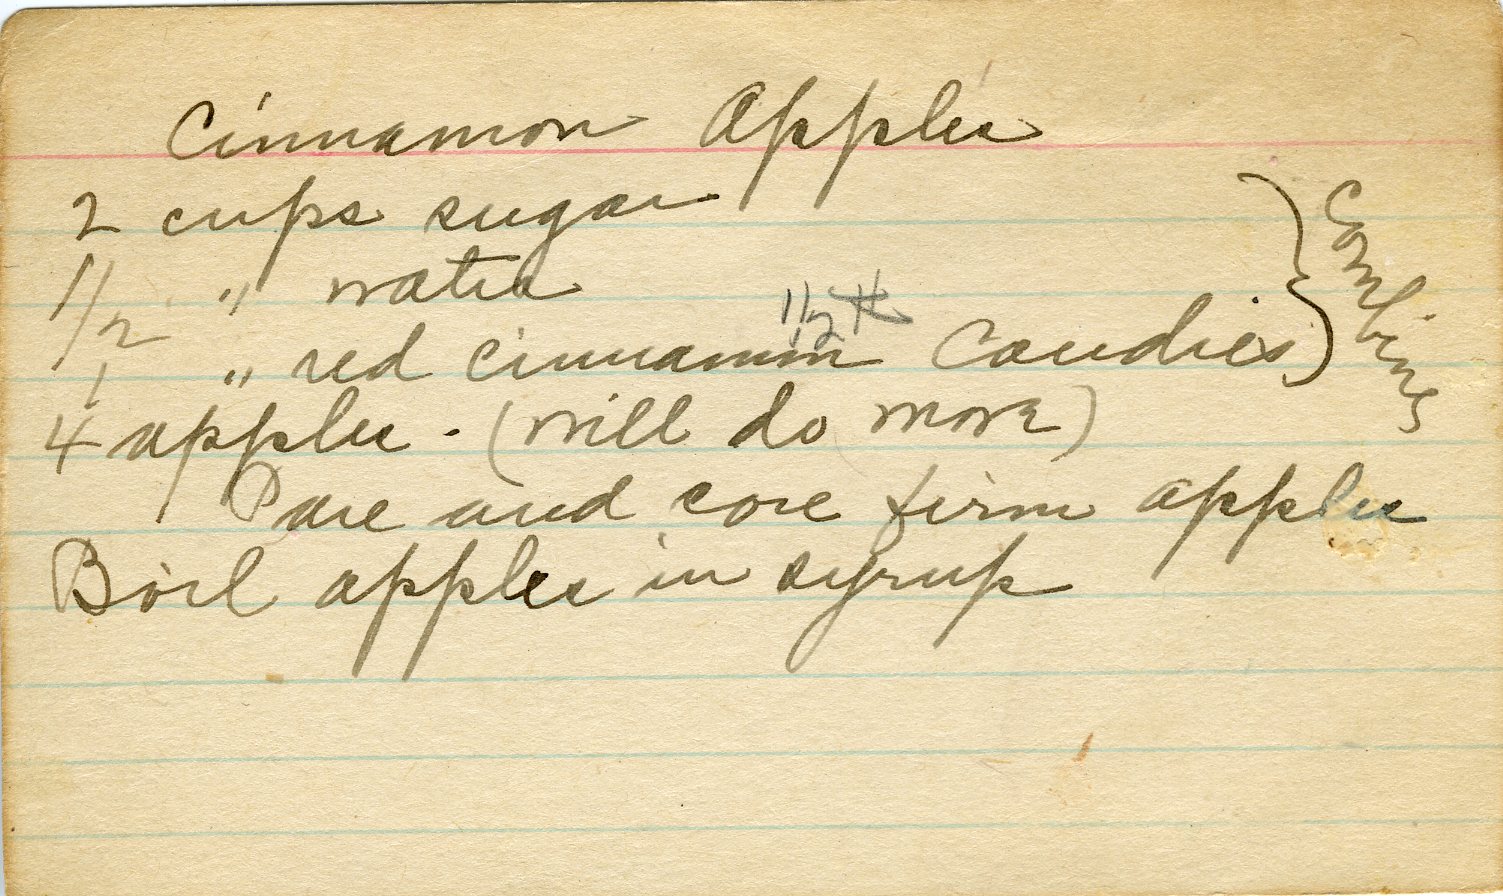 Cinnamon Apples
2 cups sugar
1/2 " water
1/2 #
1 " red cinnamon Candies } Combine
4 apples. (will do more)
Pare and core firm apples
Boil apples in syrup